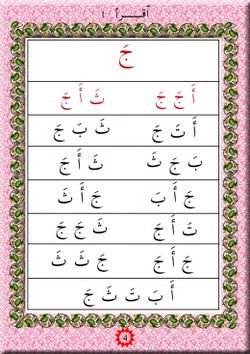 اقرأ ١
جَ
أَ جَ جَ ثَ أَ جَ
أَ تَ جَ ثَ بَ جَ
بَ جَ ثَ ثَ أَ جَ
جَ أَ بَ جَ أَ ثَ
تَ أَ جَ ثَ جَ جَ
جَ أَ جَ جَ ثَ ثَ
أَ بَ تَ ثَ جَ
4